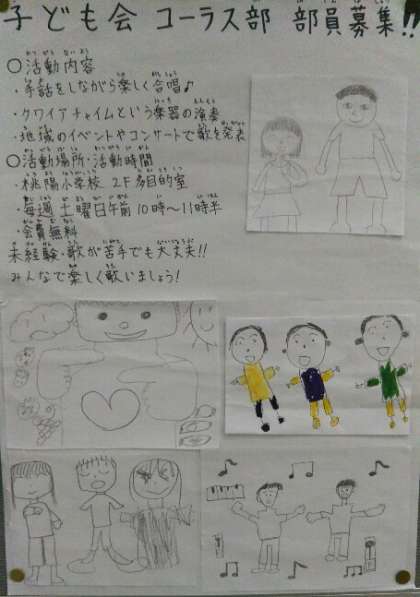 子ども会 コーラス部 部員募集!!
○活動内容
・手話をしながら楽しく合唱♪
・クワイアチャイムという楽器の演奏
・地域のイベントやコンサートで歌を発表
○活動場所・活動時間
・桃陽小学校 2F多目的室
・毎週土曜日午前10時～11時半
・会費無料
未経験・歌が苦手でも大丈夫!!
みんなで楽しく歌いましょう!